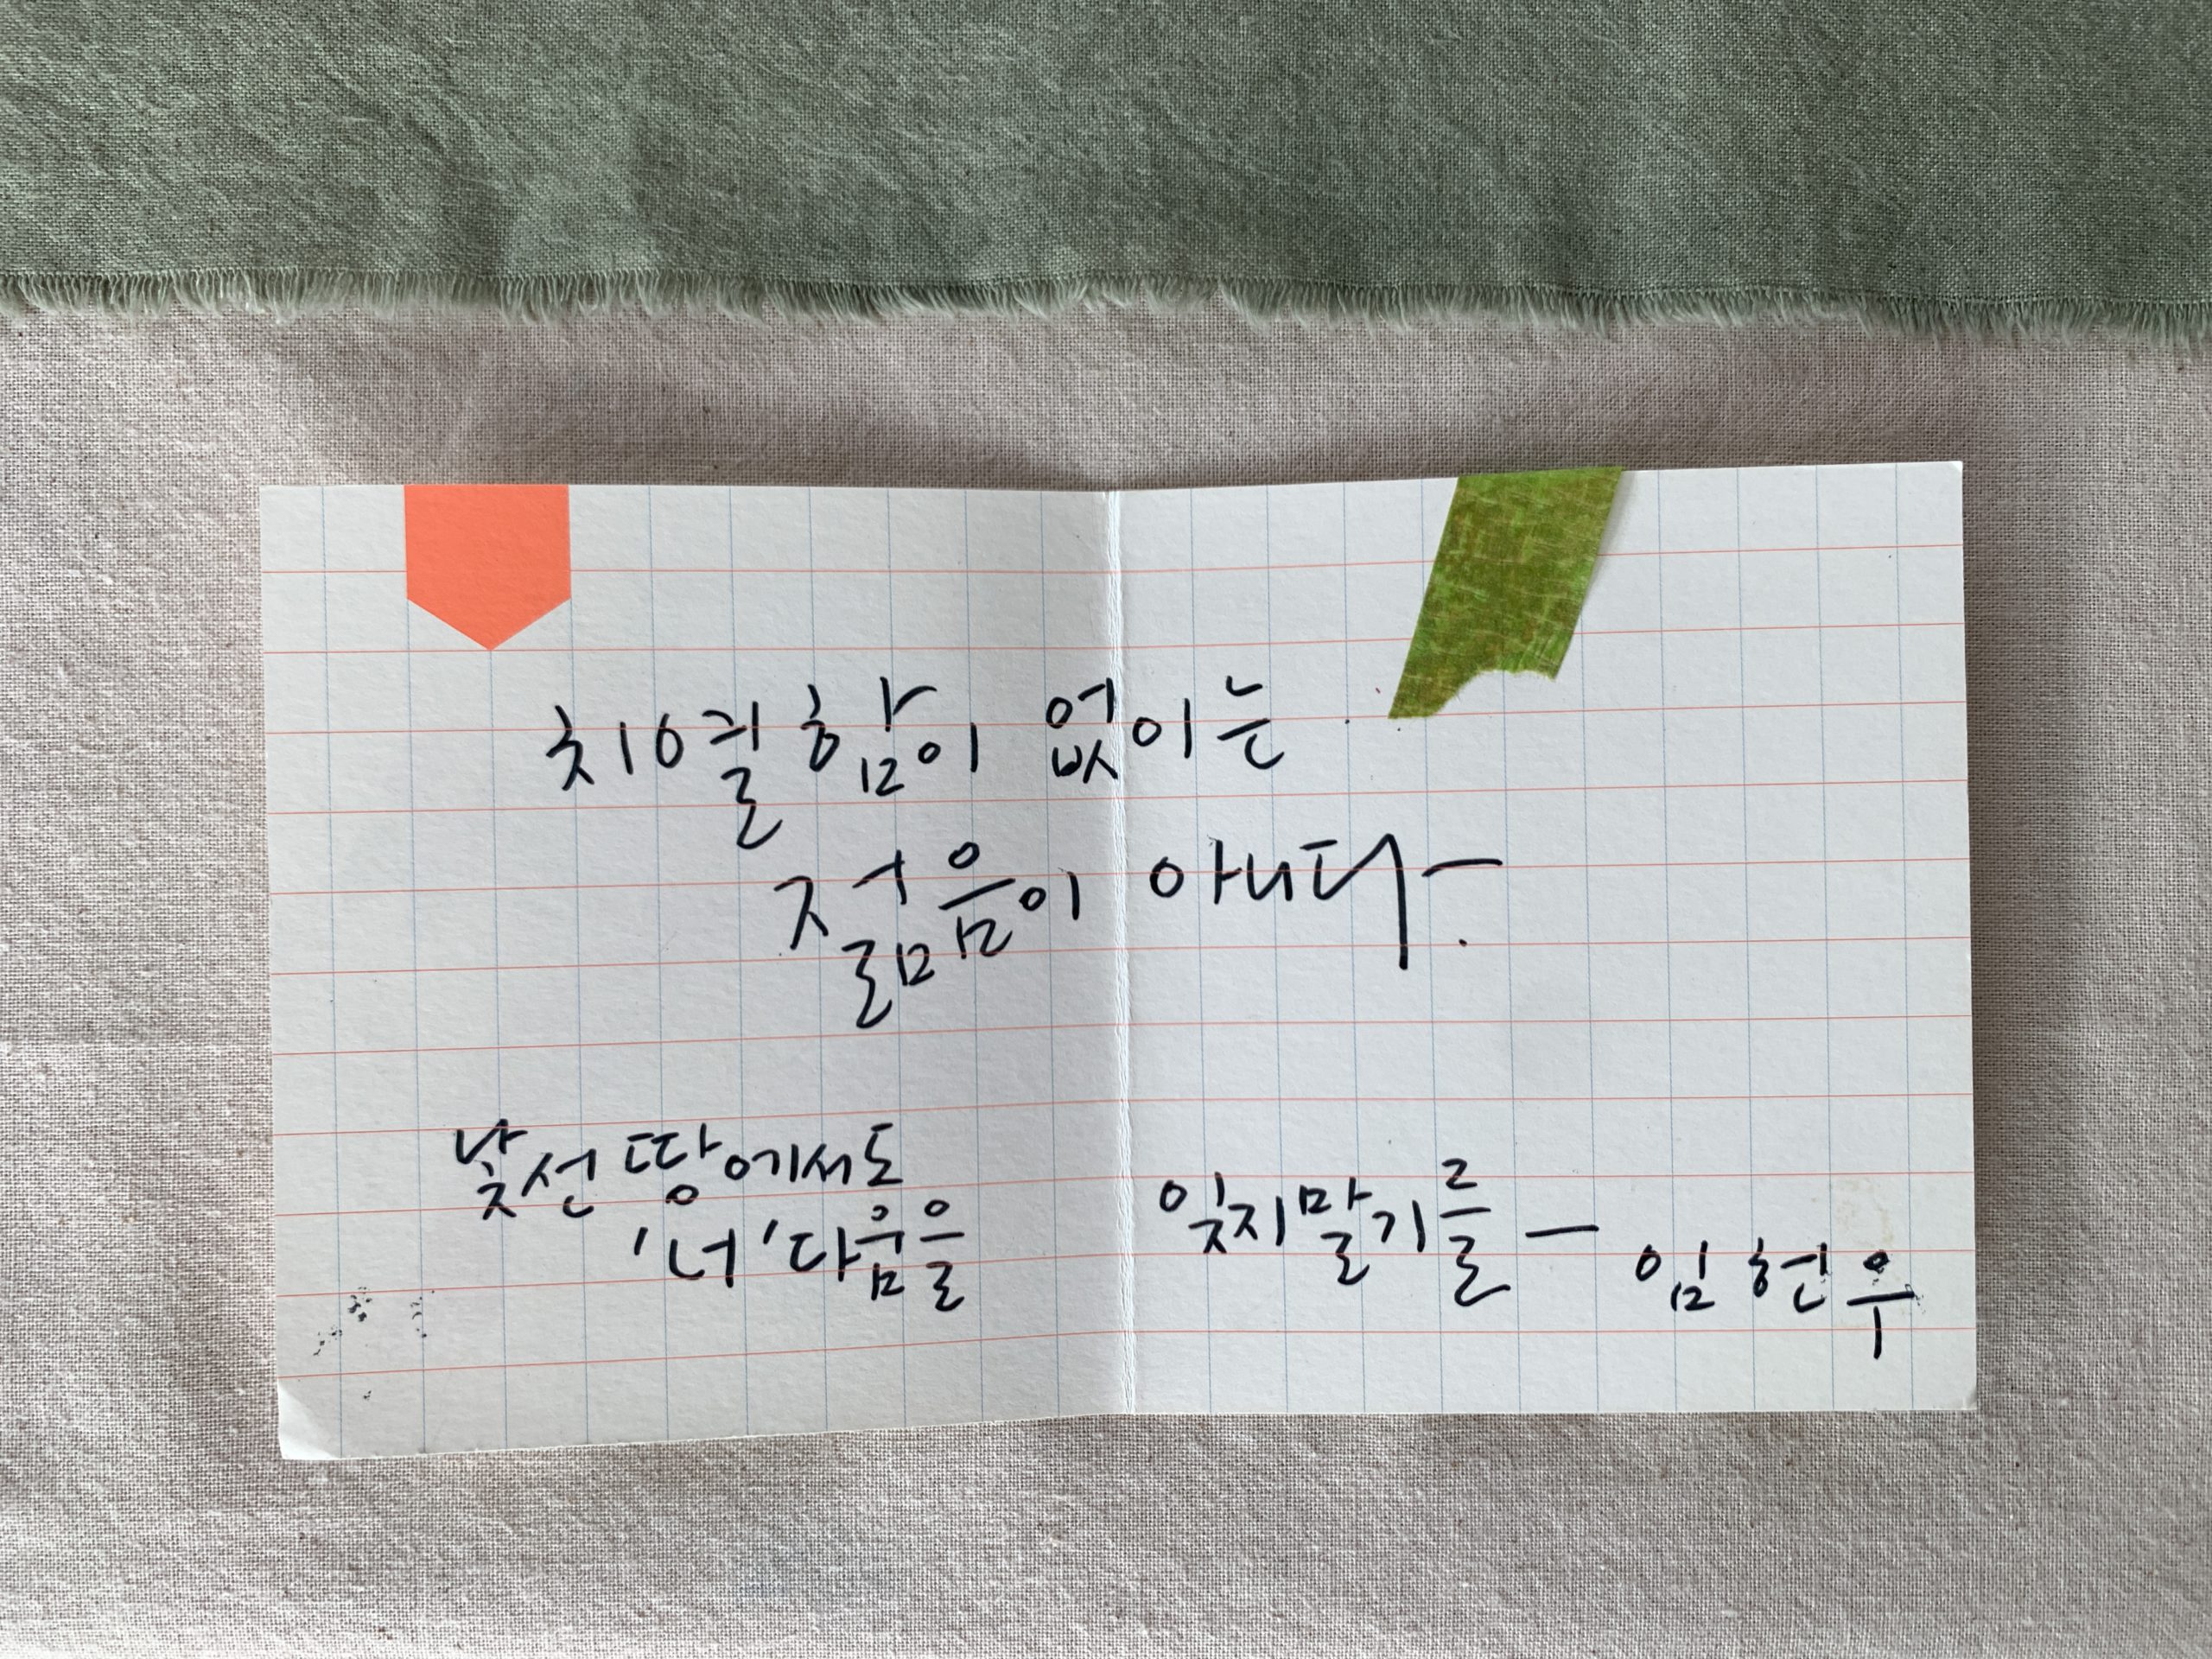 치열함이 없이는
젊음이 아니다-.
낯선 땅에서도
'너'다움을
잊지말기를 -
임현우